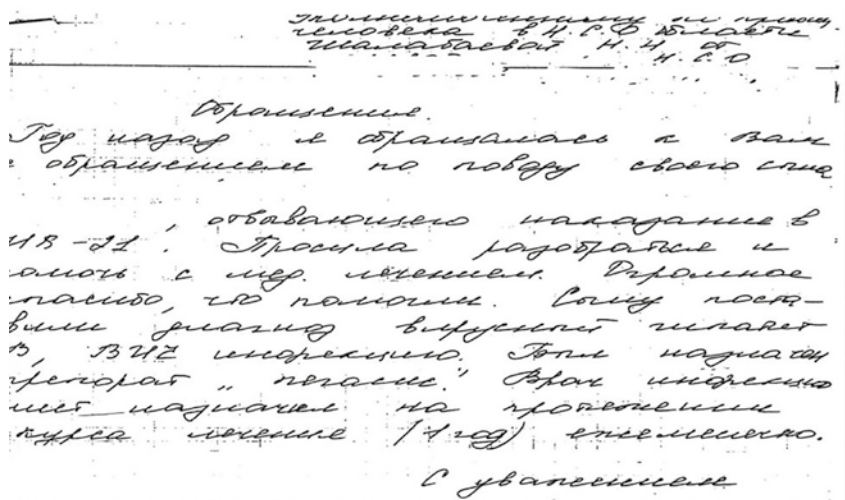 Уполномоченному по правам
человека в Н.С.О области
Шалабаевой Н. Н от
Н. С. О
Обращение.
Год назад я обращалась к Вам
с обращением по поводу своего сына
, отбывающего наказание в
ИК-21. Просила разобраться и
омочь с мед. лечением. Огромное
пасибо, что помогли. Сыну поста-
вили диагноз вирусный гипатет
В, ВИЧ инфекцию. Был назначен
репорат „ пегасис". Врач инфекцио
нист назначил на протежении
курса лечение (1 год) ежемесечно.
С уважением